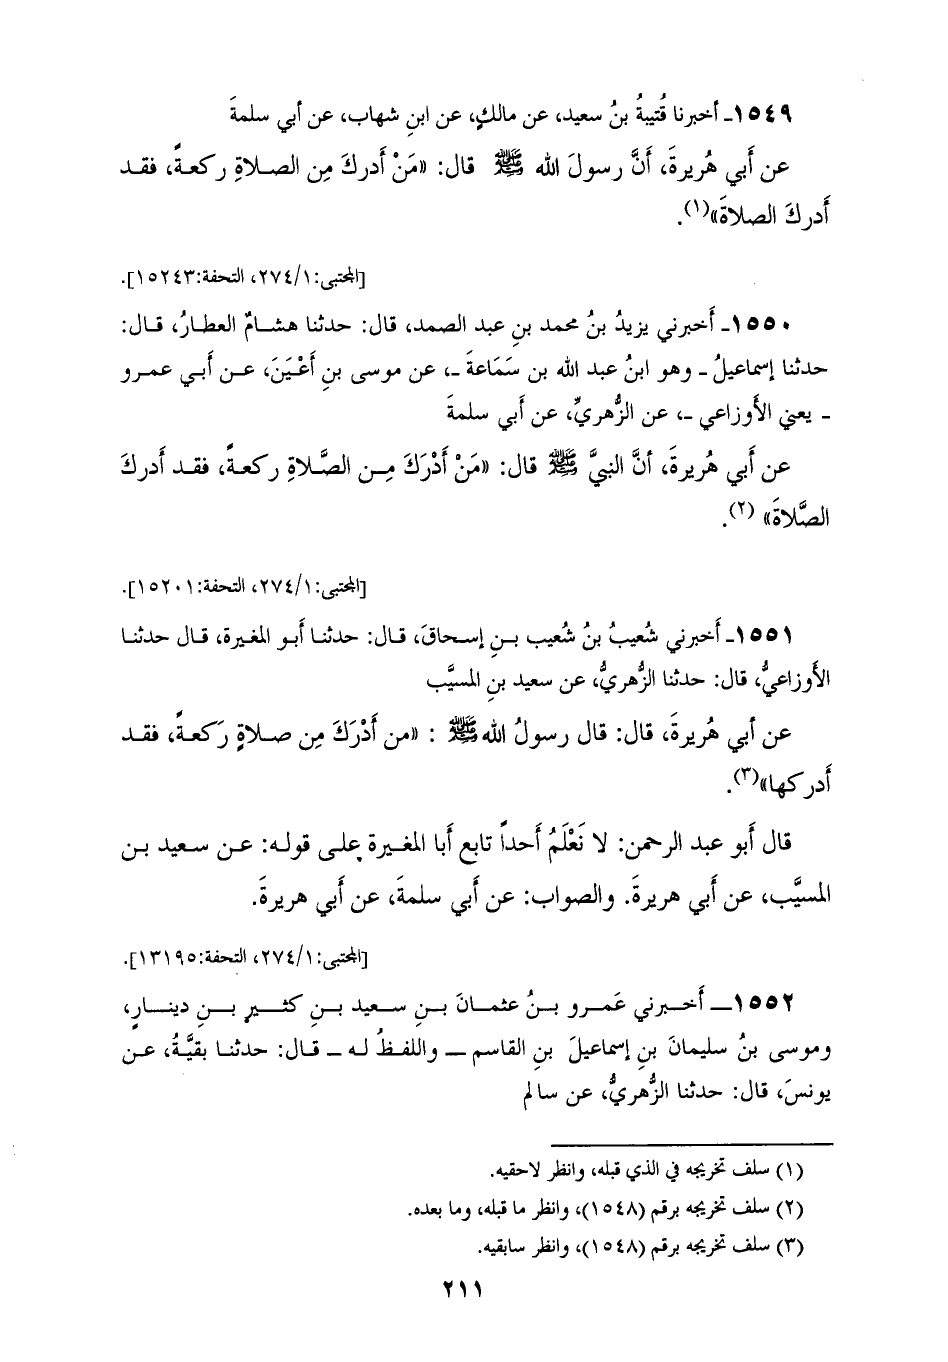 ١٥٤٩ـ أخبرنا قُتيبةُ بنُ سعيد، عن مالكٍ، عن ابنِ شهاب، عن أبي سلمةَ
عن أَبي هُريرةَ، أَنَّ رسولَ الله ﷺ قال: «مَنْ أدركَ مِن الصلاةِ ركعةً، فقد
أَدركَ الصلاةَ»(١).
[المجتبى: ٢٧٤/١، التحفة: ١٥٢٤٣].
١٥٥٠ـ أَخبرني يزيدُ بنُ محمد بنِ عبد الصمد، قال: حدثنا هشامٌ العطارُ، قال:
حدثنا إسماعيلُ ـ وهو ابنُ عبد الله بن سَمَاعةَ ـ، عن موسى بنِ أَعْيَنَ، عن أَبي عمرو
ـ يعني الأَوزاعي ـ، عن الزُّهريِّ، عن أَبي سلمةَ
عن أَبي هُريرةَ، أنَّ النبيَّ ﷺ قال: «مَنْ أَدْرَكَ مِن الصَّلاةِ ركعةً، فقد أَدركَ
الصَّلاةَ» (٢).
[المجتبى: ٢٧٤/١، التحفة: ١٥٢٠١].
١٥٥١ـ أَخبرني شُعيبُ بنُ شُعيب بنِ إسحاقَ، قال: حدثنا أَبو المغيرة، قال حدثنا
الأَوزاعيُّ، قال: حدثنا الزُّهريُّ، عن سعيد بنِ المسيَّب
عن أبي هُريرةَ، قال: قال رسولُ الله ﷺ : «من أَدْرَكَ مِن صلاةٍ رَكعةً، فقد
أَدركها»(٣).
قال أَبو عبد الرحمن: لا نَعْلَمُ أَحداً تابع أَبا المغيرة على قوله: عن سعيد بن
المسيَّب، عن أَبي هريرةَ. والصواب: عن أَبي سلمةَ، عن أَبي هريرةَ.
[المجتبى: ٢٧٤/١، التحفة: ١٣١٩٥].
١٥٥٢ـ أَخبرني عَمرو بنُ عثمانَ بنِ سعيد بنِ كثيرِ بنِ دينارٍ،
وموسى بنُ سليمانَ بنِ إسماعيلَ بنِ القاسم ـ واللفظُ له ـ قال: حدثنا بقيَّةُ، عن
يونسَ، قال: حدثنا الزُّهريُّ، عن سالم
(١) سلف تخريجه في الذي قبله، وانظر لاحقيه.
(٢) سلف تخريجه برقم (١٥٤٨)، وانظر ما قبله، وما بعده.
(٣) سلف تخريجه برقم (١٥٤٨)، وانظر سابقيه.
٢١١